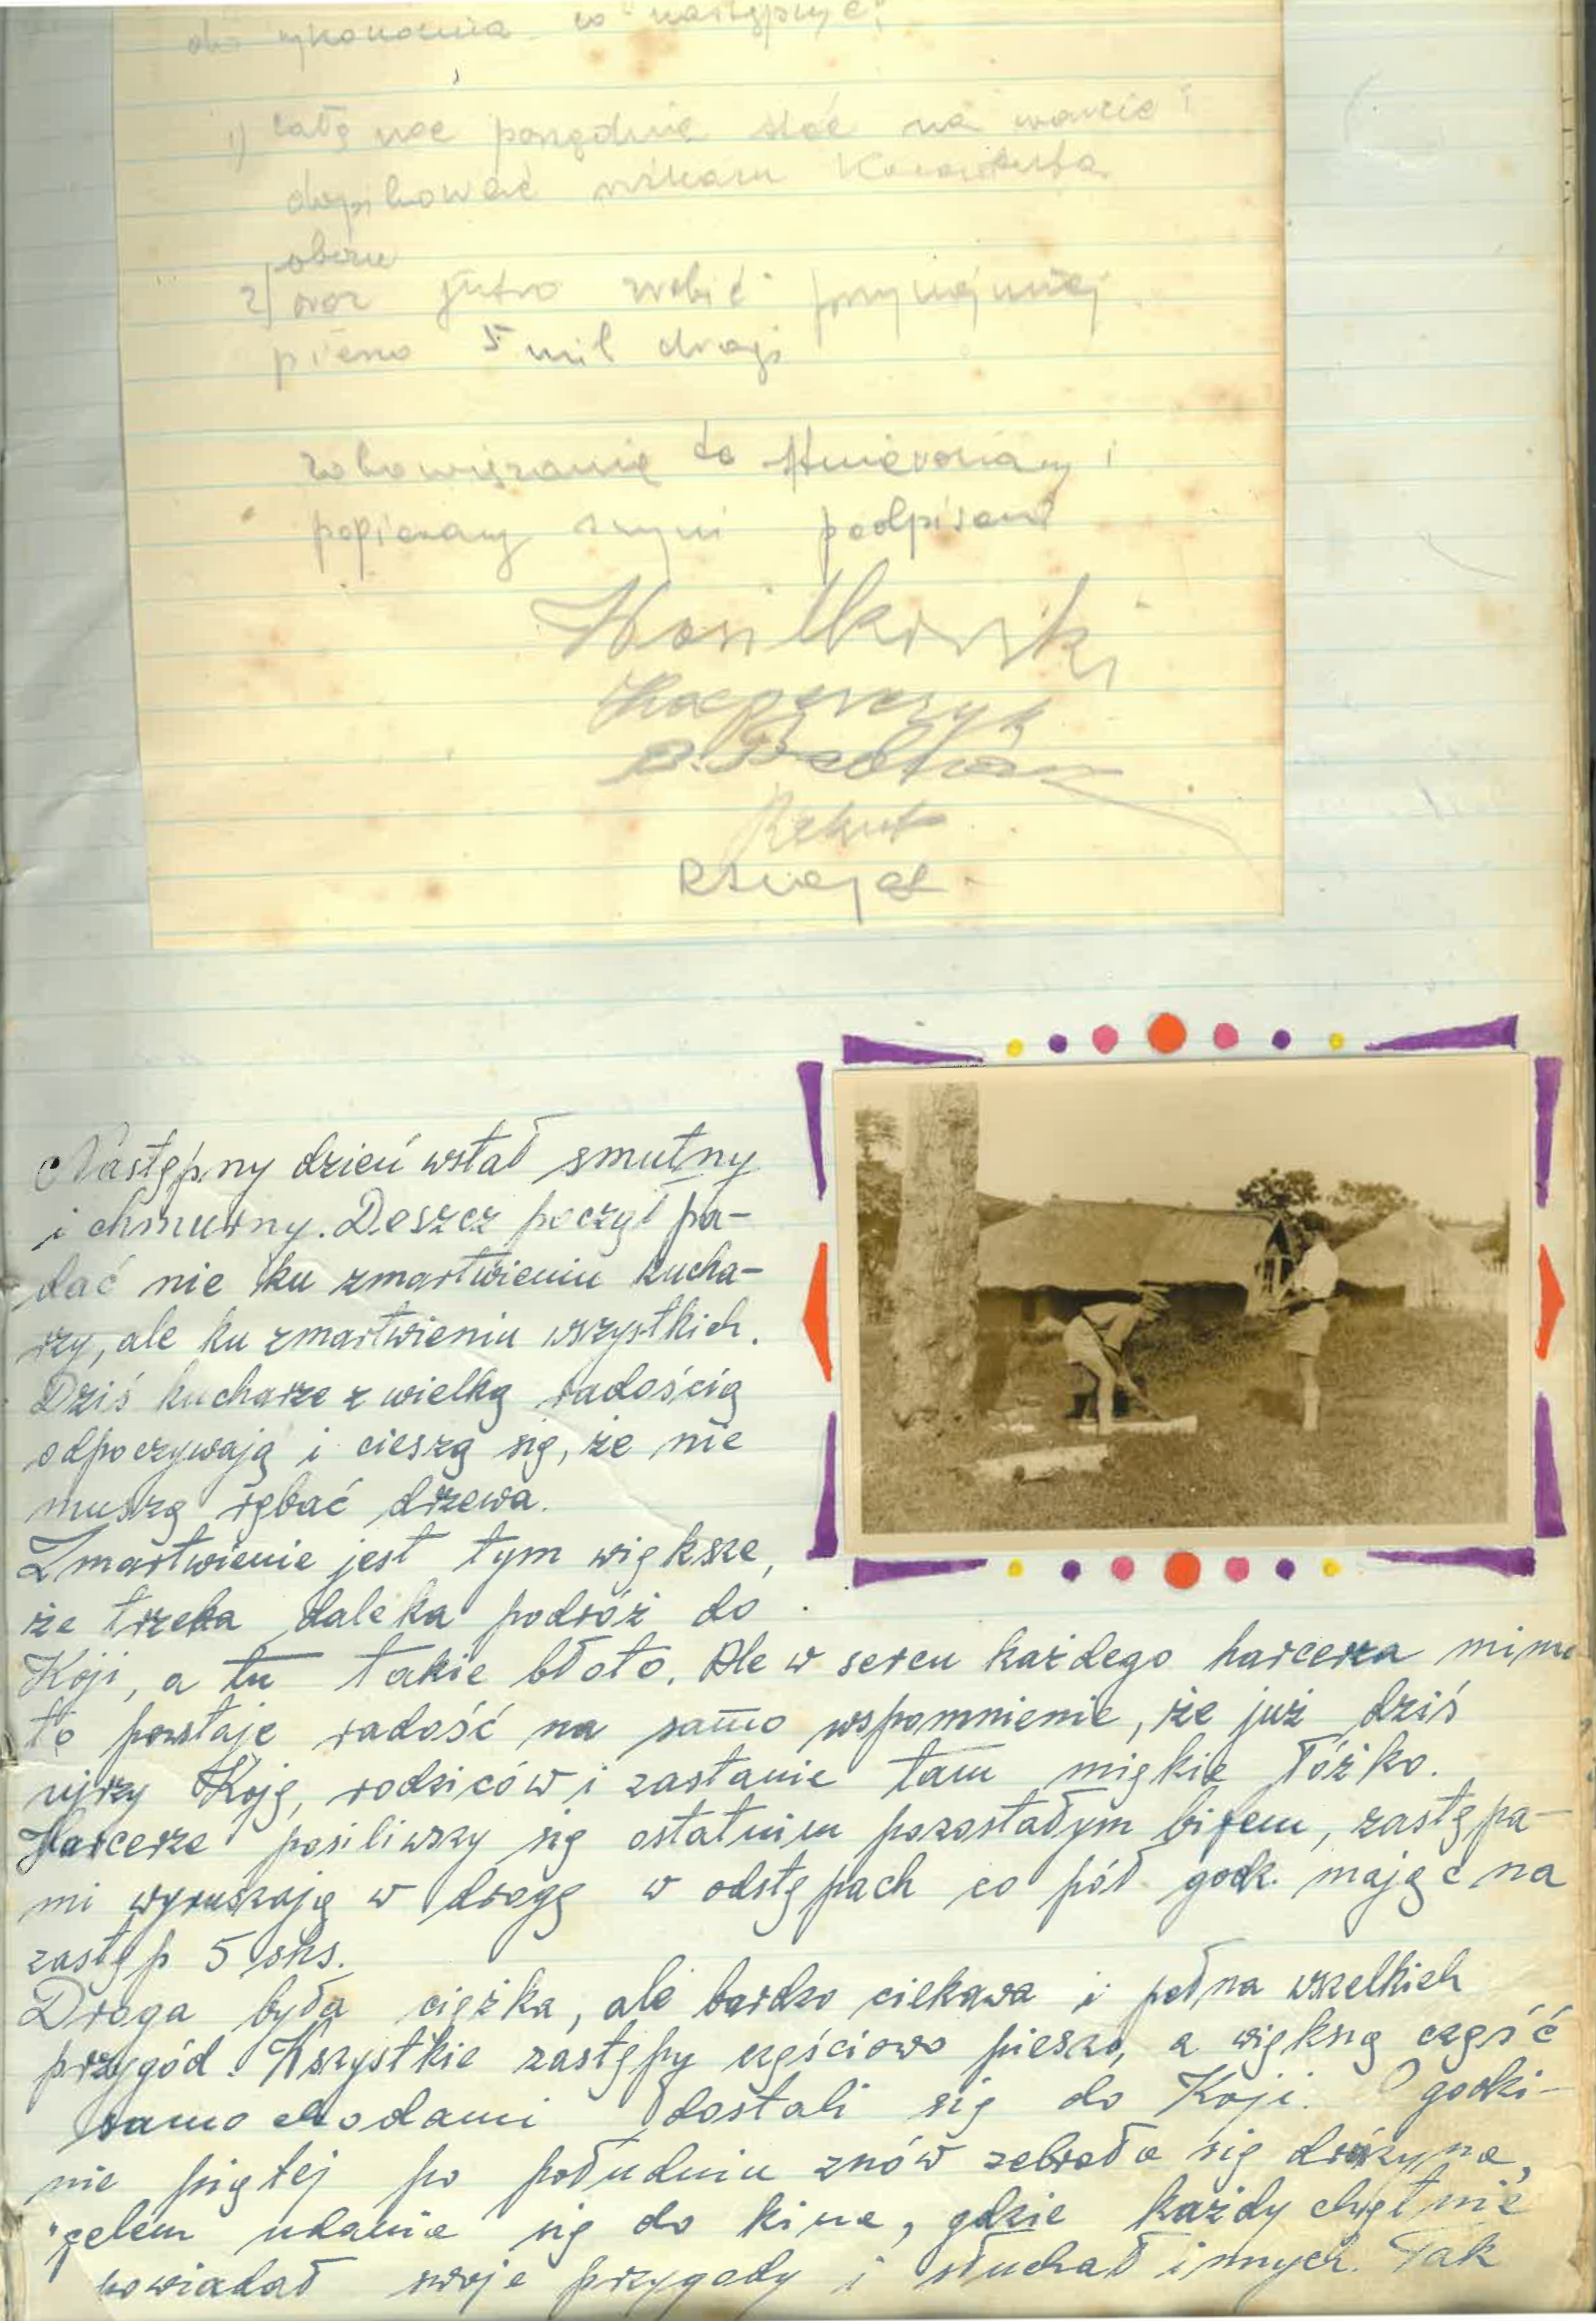 wykonania co następuje:
1) całą noc porządnie stać na warcie i
dopilnować
obozu
2) oraz jutro zrobić przynajmniej
pieszo 5 mil drogi
zobowiązanie to stwierdzamy i
popieramy swymi podpisami
Wasilkowski
Kacperczyk
Rekut
Następny dzień wstał smutny
i chmurny. Deszcz począł pa-
dać nie ku zmartwieniu kucha-
rzy, ale ku zmartwieniu wszystkich.
Dziś kucharze z wielką radością
odpoczywają i cieszą się, że nie
muszą rąbać drzewa.
Zmartwienie jest tym większe,
że trzeba daleka podróż do
Koji, a tu takie błoto. Ale w sercu każdego harcerza mimo
to powstaje radość na samo wspomnienie, że już dziś
ujrzy Koję, rodziców i zastanie tam miękkie łóżko.
Harcerze posiliwszy się ostatnim pozostałym bifem, zastępa-
mi wyruszają w drogę w odstępach co pół godz. mając na
zastęp 5 shs.
Droga była ciężka, ale bardzo ciekawa i pełna wszelkich
przygód. Wszystkie zastępy częściowo pieszo, a większą część
samochodami dostali się do Koji. O godzi-
nie piątej po południu znów zebrała się drużyna,
celem udania się do kina, gdzie każdy chętnie
powiadał swoje przygody i słuchał innych. Tak